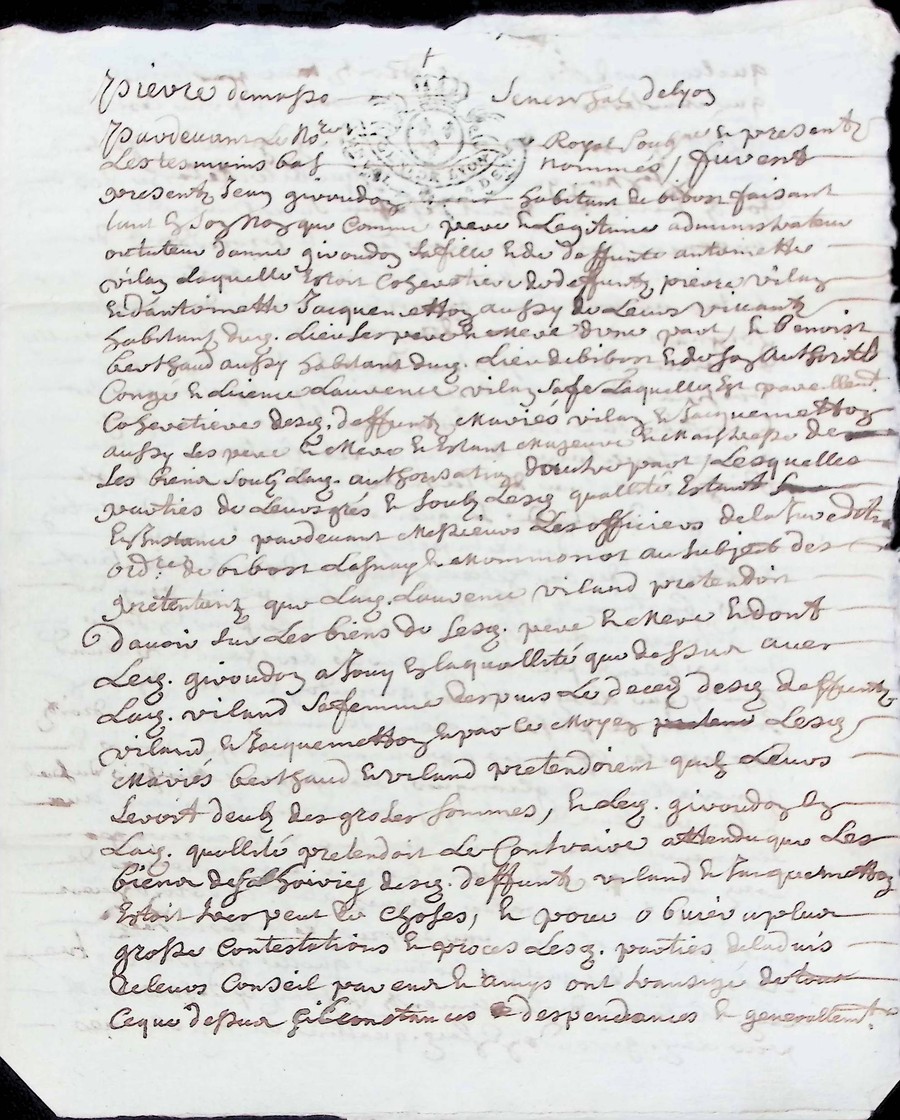 pierre demasso Seneschal de lyon
pardevant le No.re Royal soubz.ne et presentz
Les tesmoins bas nommés, furent
presentz Jean giroudon habitant de bibost faisant
tant En Son Nom que Comme pere et Legitime administrateur
et tuteur danne giroudon sa fille et de deffunte antoinette
vilan Laquelle Estoit Coheretiere de deffuntz pierre vilan
Et d'antoinette Jacquemetton aussy de Leurs vivantz
habitantz dud. Lieu Ses pere et Mere dune part, Et benoist
berthaud aussy habitant dud. Lieu de bibost Et de son Authorité
Congé et Licence Laurence vilan sa fe. Laquelle Est pareillemt.
Coheretiere desd. deffuntz Mariés vilan et Jacquemetton
aussy Ses pere et Mere Et Estant Majeure et Maistresse de
Ses biens soubz lad. authorisation d'autre part, Lesquelles
parties de Leurs grés et soubz Lesd. quallités Estant
En Instance pardevant Messieurs Les officiers de la Jurediction
ord.re de bibost Lasnay et Mommorot au Subject des
pretentions que Lad. Laurence viland pretendoit
d'avoir sur Les biens de Sesd. pere et Mere Et dont
Led. giroudon a Jouy En laquallité que dessus avec
Lad. viland Sa femme despuis Le deced desd. deffuntz
viland et Jacquemetton Et par ce Moyen Lesd.
Mariés berthaud et viland pretendoient quil Leurs
Seroit deub des groses sommes, Et Led. giroudon En
Lad. quallité pretendoit Le Contraire attendu que Les
biens des hoiries desd. deffuntz viland et Jacquemetton
Estoit tres peut de Choses, Et pour obvier a plus
grosse Contestations Et proces Lesd. parties de Laduis
de leurs Conseil parens et amys ont transigé de tout
Ceque dessus Circonstances et despendances Et generallemt.